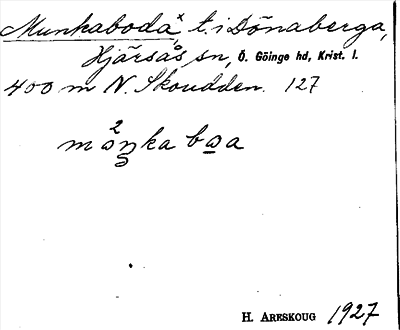 Munkaboda, ˣ t. i Dönaberga,
Hjärsås sn, Ö. Göinge hd, Krist. l.
400 m N. Skoudden. 127
H. ARESKOUG 1927